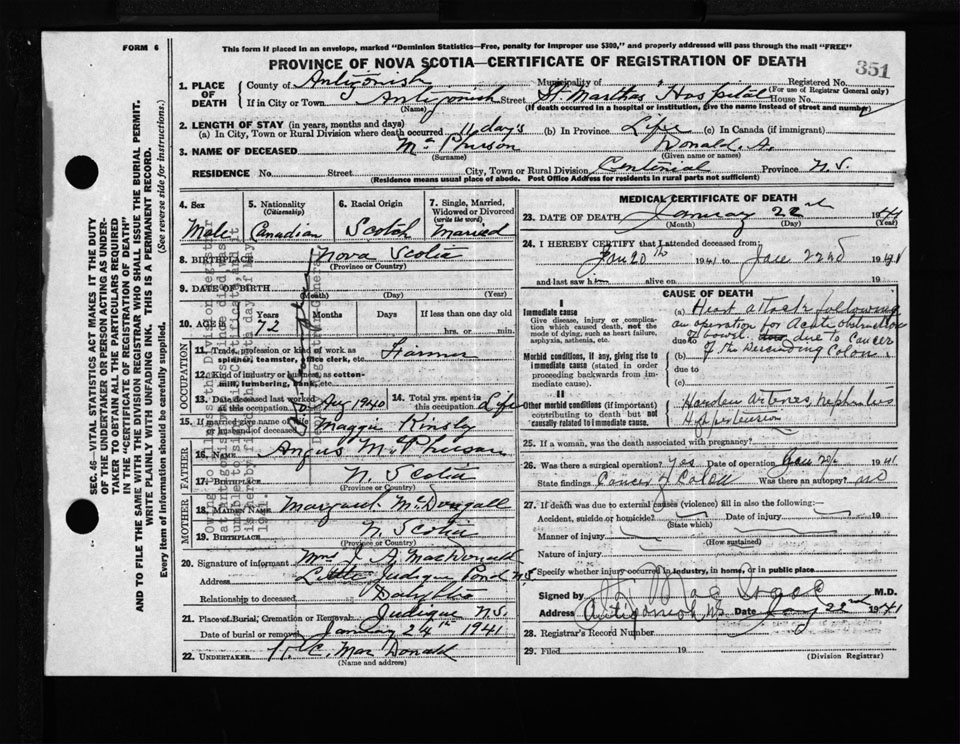 FORM 6
This form if placed in an envelope, marked "Dominion Statistics—Free, penalty for improper use $300," and properly addressed will pass through the mail "FREE"
PROVINCE OF NOVA SCOTIA—CERTIFICATE OF REGISTRATION OF DEATH
351
1. PLACE OF DEATH
County of Antigonish Municipality of Registered No.
(For use of Registrar General only)
If in City or Town Antigonish Street St Martha's Hospital House No.
(Name) (If death occurred in a hospital or institution, give the name instead of street and number)
2. LENGTH OF STAY (in years, months and days)
(a) In City, Town or Rural Division where death occurred 11 days (b) In Province Life (c) In Canada (if immigrant)
3. NAME OF DECEASED Mc Pherson Donald. A.
(Surname) (Given name or names)
RESIDENCE No. Street City, Town or Rural Division Province N.S.
(Residence means usual place of abode. Post Office Address for residents in rural parts not sufficient)
4. Sex 5. Nationality 6. Racial Origin 7. Single, Married,
(Citizenship) Widowed or Divorced
(write the word)
Male Canadian Scotch Married
8. BIRTHPLACE Nova Scotia
(Province or Country)
9. DATE OF BIRTH
(Month) (Day) (Year)
10. AGE Years Months Days If less than one day old
72 hrs. or min.
OCCUPATION
11. Trade, profession or kind of work as
spinner, teamster, office clerk, etc. Farmer
12. Kind of industry or business, as cotton-
mill, lumbering, bank, etc.
13. Date deceased last worked at this occupation Aug 1940 14. Total yrs. spent in this occupation Life
15. If married give name of husband or wife of deceased Maggie Kinsly
FATHER
16. NAME Angus McPherson
17. BIRTHPLACE N. Scotia
(Province or Country)
MOTHER
18. MAIDEN NAME Margaret McDougall
19. BIRTHPLACE N. Scotia
(Province or Country)
20. Signature of informant Mrs J. A MacDonald
Address Little Judique Pond N.S
Relationship to deceased
21. Place of Burial, Cremation or Removal Judique N.S.
Date of burial or removal January 24th 1941
22. UNDERTAKER MacDonald
(Name and address)
MEDICAL CERTIFICATE OF DEATH
23. DATE OF DEATH January 22nd 1941
(Month) (Day) (Year)
24. I HEREBY CERTIFY that I attended deceased from:
Jan 20th 1941 to Jan 22nd 1941
and last saw him alive on 19
CAUSE OF DEATH
I
Immediate cause
Give disease, injury or complication which caused death, not the mode of dying, such as heart failure, asphyxia, asthenia, etc.
(a) Heart attack following
an operation for Acute obstruction
due to of bowel due to Cancer
(b) of the Descending Colon.
due to
(c)
Morbid conditions, if any, giving rise to immediate cause (stated in order proceeding backwards from immediate cause).
II
Other morbid conditions (if important) contributing to death but not causally related to immediate cause.
Harden arteries, Nephritis
Hypertension
25. If a woman, was the death associated with pregnancy?
26. Was there a surgical operation? yes Date of operation 1941
State findings Cancer of Colon Was there an autopsy? no
27. If death was due to external causes (violence) fill in also the following:—
Accident, suicide or homicide? Date of injury 19
(State which)
Manner of injury
(How sustained)
Nature of injury
Specify whether injury occurred in industry, in home, or in public place
Signed by M.D.
Address Antigonish NS Date Jany 22nd 1941
28. Registrar's Record Number
29. Filed 19
(Division Registrar)
SEC. 46—VITAL STATISTICS ACT MAKES IT THE DUTY
OF THE UNDERTAKER OR PERSON ACTING AS UNDER-
TAKER TO OBTAIN ALL THE PARTICULARS REQUIRED
IN THE "CERTIFICATE OF REGISTRATION OF DEATH"
AND TO FILE THE SAME WITH THE DIVISION REGISTRAR WHO SHALL ISSUE THE BURIAL PERMIT.
WRITE PLAINLY WITH UNFADING INK. THIS IS A PERMANENT RECORD.
Every item of information should be carefully supplied. (See reverse side for instructions.)